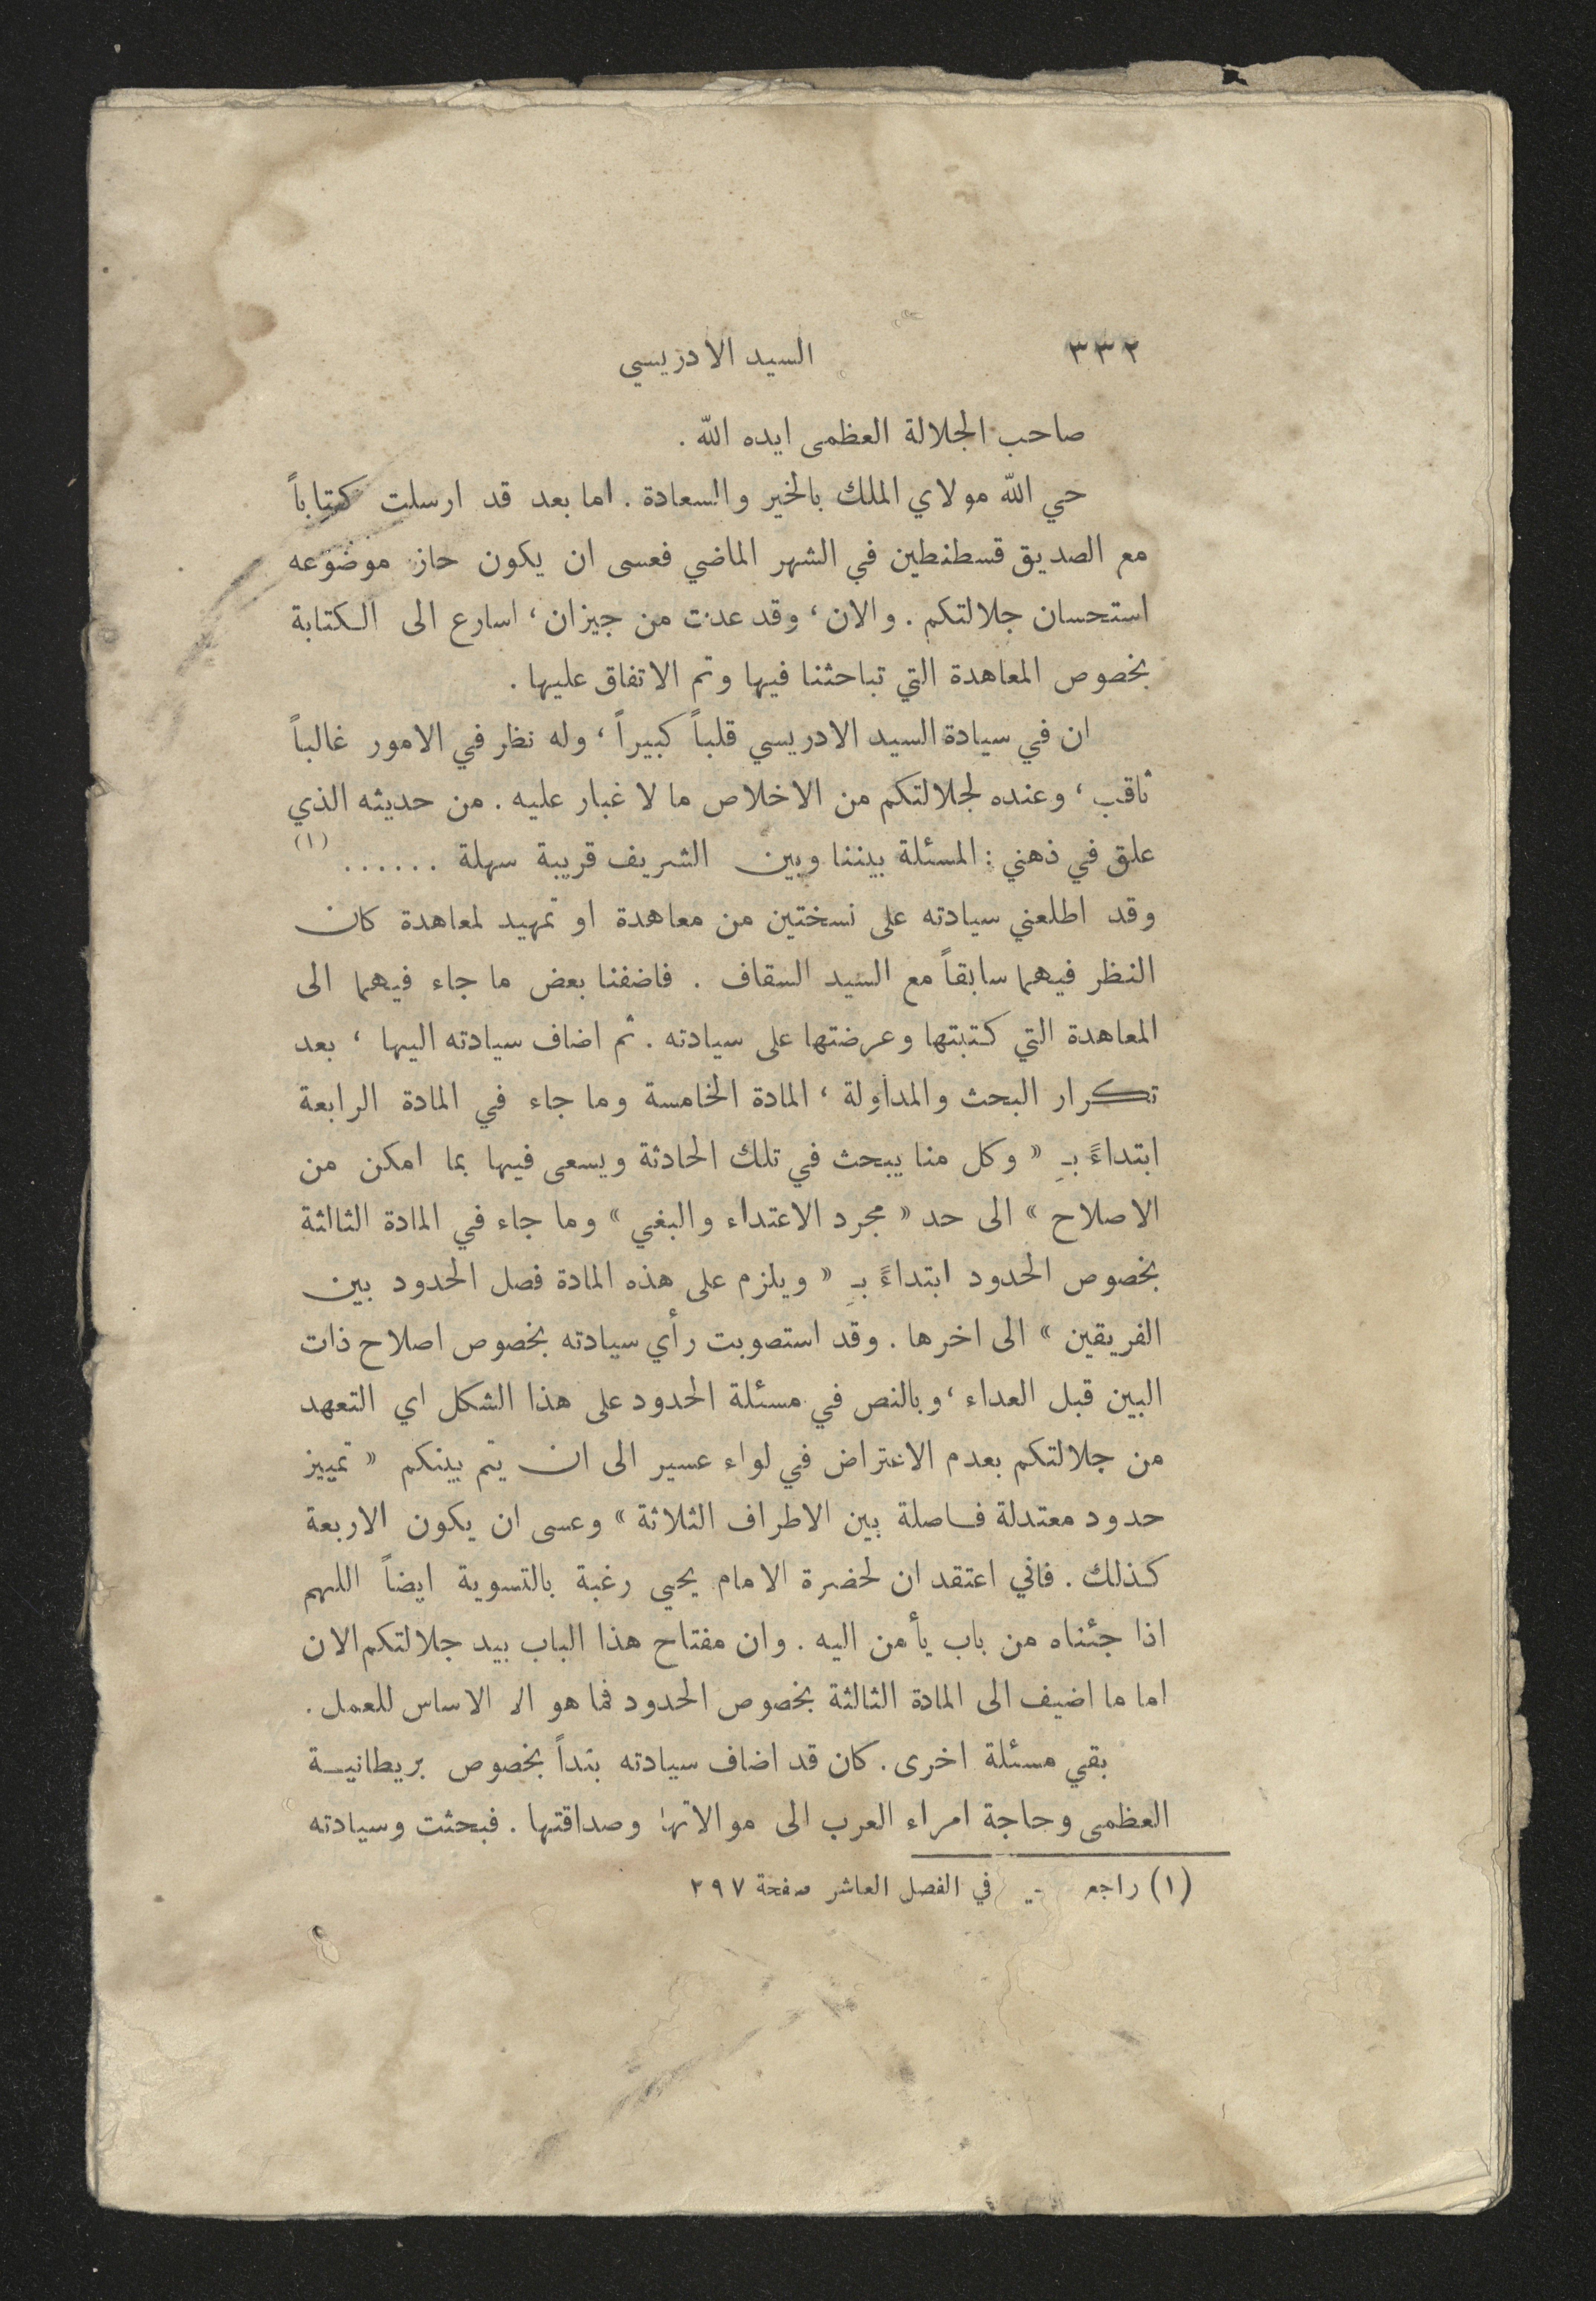 ٣٣٢
السيد الادريسي
صاحب الجلالة العظمى ايده الله .
حي الله مولاي الملك بالخير والسعادة . اما بعد قد ارسلت كتاباً
مع الصديق قسطنطين في الشهر الماضي فعسى ان يكون حاز موضوعه
استحسان جلالتكم . والان ، وقد عدت من جيزان ، اسارع الى الكتابة
بخصوص المعاهدة التي تباحثنا فيها وتم الاتفاق عليها .
ان في سيادة السيد الادريسي قلباً كبيراً ، وله نظر في الامور غالباً
ثاقب ، وعنده لجلالتكم من الاخلاص ما لا غبار عليه . من حديثه الذي
علق في ذهني : المسئلة بيننا وبين الشريف قريبة سهلة . . . . . . (١)
وقد اطلعني سيادته على نسختين من معاهدة او تمهيد لمعاهدة كان
النظر فيهما سابقاً مع السيد السقاف . فاضفنا بعض ما جاء فيهما الى
المعاهدة التي كتبتها وعرضتها على سيادته . ثم اضاف سيادته اليها ، بعد
تكرار البحث والمداولة ، المادة الخامسة وما جاء في المادة الرابعة
ابتداءً بـِ « وكل منا يبحث في تلك الحادثة ويسعى فيها بما امكن من
الاصلاح » الى حد « مجرد الاعتداء والبغي » وما جاء في المادة الثالثة
بخصوص الحدود ابتداءً بـِ « ويلزم على هذه المادة فصل الحدود بين
الفريقين » الى اخرها . وقد استصوبت رأي سيادته بخصوص اصلاح ذات
البين قبل العداء ، وبالنص في مسئلة الحدود على هذا الشكل اي التعهد
من جلالتكم بعدم الاعتراض في لواء عسير الى ان يتم بينكم « تمييز
حدود معتدلة فاصلة بين الاطراف الثلاثة » وعسى ان يكون الاربعة
كذلك . فاني اعتقد ان لحضرة الامام يحيى رغبة بالتسوية ايضاً اللهم
اذا جئناه من باب يأمن اليه . وان مفتاح هذا الباب بيد جلالتكم الان
اما ما اضيف الى المادة الثالثة بخصوص الحدود فما هو الا الاساس للعمل .
بقي مسئلة اخرى . كان قد اضاف سيادته بنداً بخصوص بريطانية
العظمى وحاجة امراء العرب الى موالاتها وصداقتها . فبحثت وسيادته
(١) راجع في الفصل العاشر صفحة ٢٩٧